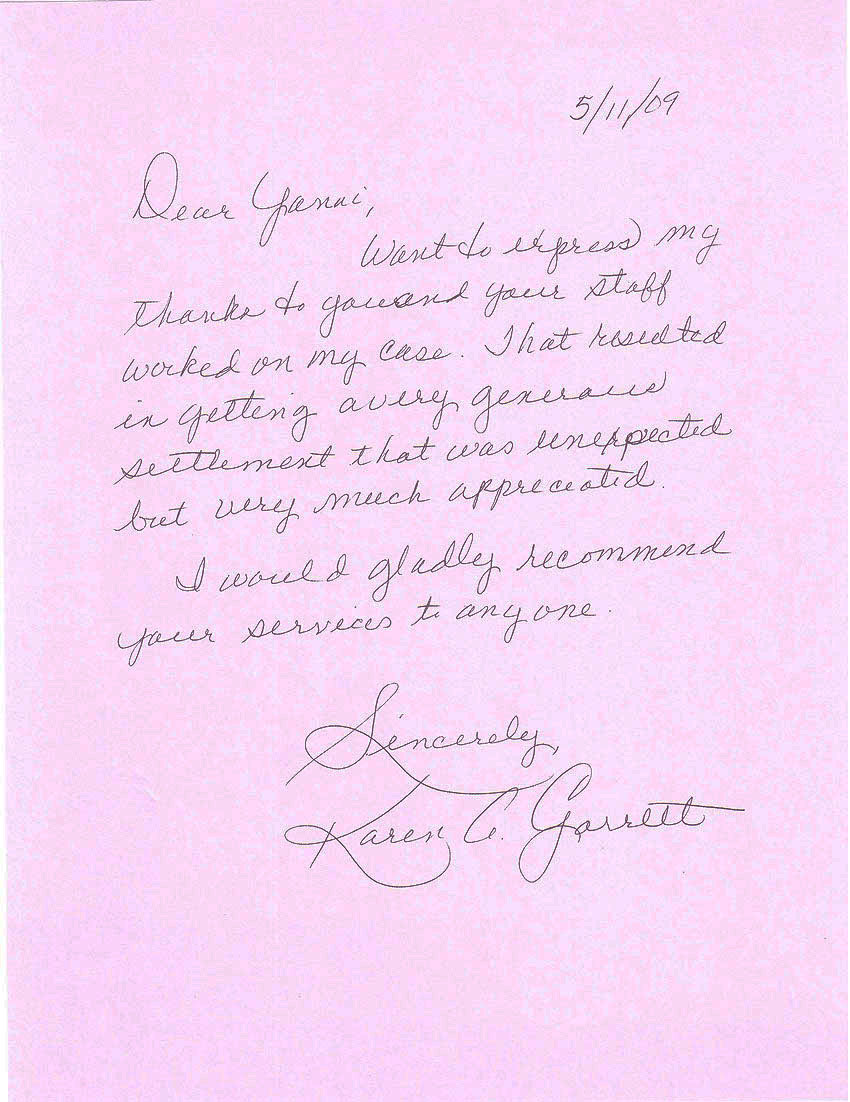 5/11/09
Dear Yanai,
Want to express my
thanks to you and your staff
worked on my case. That resulted
in getting a very generous
settlement that was unexpected
but very much appreciated.
I would gladly recommend
your services to anyone.
Sincerely,
Karen C. Garrett